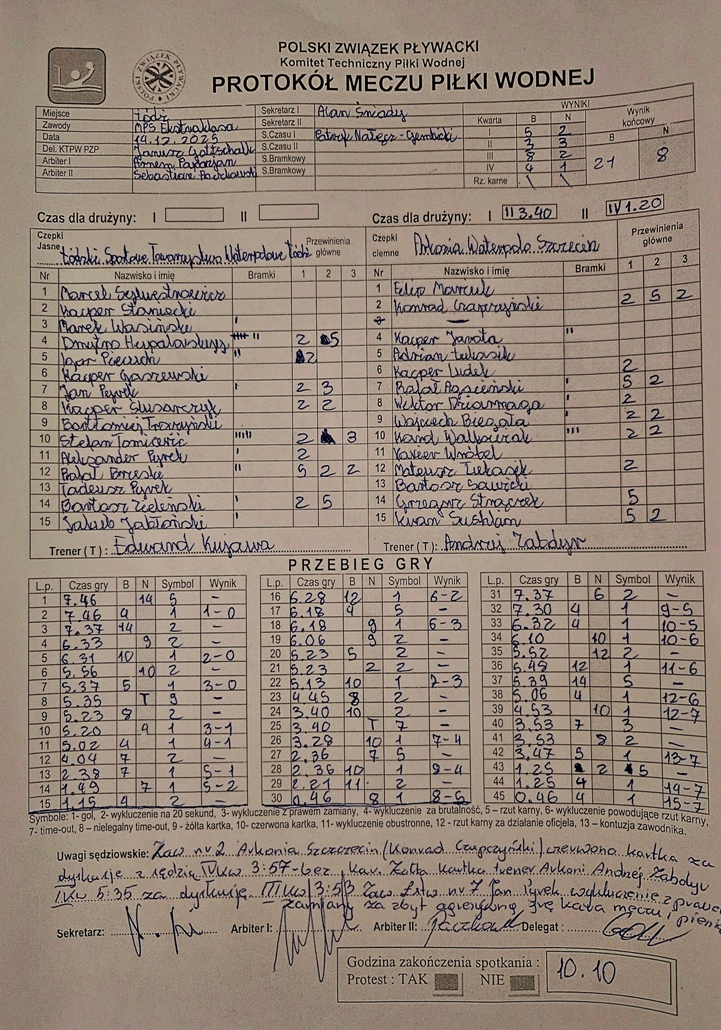 POLSKI ZWIĄZEK PŁYWACKI
Komitet Techniczny Piłki Wodnej
PROTOKÓŁ MECZU PIŁKI WODNEJ
POLSKI ZWIĄZEK PŁYWACKI
Miejsce Łódź Sekretarz I Alan Śniady WYNIKI
Zawody MPS Ekstraklasa Sekretarz II Kwarta B N Wynik końcowy
Data 14.12.2025 S.Czasu I Patryk Nałęcz-Gembicki I 5 2 B N
Del. KTPW PZP Janusz Gottschalk S.Czasu II II 3 3 21 8
Arbiter I S.Bramkowy III 8 2
Arbiter II Sebastian Paczkowski S.Bramkowy IV 4 1
Rz. karne \ \
Czas dla drużyny: I II Czas dla drużyny: I II 3.40 II IV 1.20
Czepki Jasne Łódzki Sportowe Towarzystwo Waterpolowe Łódź Przewinienia główne
Nr Nazwisko i imię Bramki 1 2 3
1 Marcel
2 Kacper
3 Marek Wasiński '
4 Dmytro 2 5
5 Igor " 2
6 Kacper Gaszewski
7 Jan Pyrek ' 2 3
8 Kacper Ślusarczyk ' 2 2
9 Bartłomiej
10 Stefan 2 3
11 Aleksander Pyrek ' 2
12 Rafał " 5 2 2
13 Tadeusz Pyrek
14 Bartosz Zieliński ' 2 5
15 Jakub Jabłoński '
Trener ( T ) : Edward Kujawa
Czepki ciemne Arkonia Waterpolo Szczecin Przewinienia główne
Nr Nazwisko i imię Bramki 1 2 3
1 Filip Marciuk
2 Konrad Czapczyński ' 2 5 2
3 —
4 Kacper Jarota "
5 Adrian Łukasik
6 Kacper Ludek 2
7 Rafał ' 5 2
8 Wiktor ' 2
9 Wojciech Biegała ' 2 2
10 Karol ''' 2 2
11 Ksawery Wróbel
12 Mateusz Łukasik 2
13 Bartosz Sawicki
14 Grzegorz 5
15 Kwan 5 2
Trener ( T ) : Andrzej Zabdyr
PRZEBIEG GRY
L.p. Czas gry B N Symbol Wynik
1 7.46 14 5 –
2 7.46 4 1 1-0
3 7.37 14 2 –
4 6.33 9 2 –
5 6.31 10 1 2-0
6 5.56 10 2 –
7 5.37 5 1 3-0
8 5.35 T 9 –
9 5.23 8 2 –
10 5.20 9 1 3-1
11 5.02 4 1 4-1
12 4.04 7 2 –
13 2.38 7 1 5-1
14 1.49 7 1 5-2
15 1.15 4 2 –
L.p. Czas gry B N Symbol Wynik
16 6.28 12 1 6-2
17 6.18 4 5 –
18 6.18 9 1 6-3
19 6.06 9 2 –
20 5.23 5 2 –
21 5.23 2 2 –
22 5.13 10 1 7-3
23 4.45 8 2 –
24 3.40 10 2 –
25 3.40 T 7 –
26 3.28 10 1 7-4
27 2.36 7 5 –
28 2.36 10 1 8-4
29 2.21 11 2 –
30 0.46 8 1 8-5
L.p. Czas gry B N Symbol Wynik
31 7.37 6 2 –
32 7.30 4 1 9-5
33 6.32 4 1 10-5
34 6.10 10 1 10-6
35 5.52 12 2 –
36 5.45 12 1 11-6
37 5.39 14 5 –
38 5.06 4 1 12-6
39 4.53 10 1 12-7
40 3.53 7 3 –
41 3.53 8 2 –
42 3.47 5 1 13-7
43 1.25 2 5 –
44 1.25 4 1 14-7
45 0.46 4 1 15-7
Symbole: 1- gol, 2- wykluczenie na 20 sekund, 3- wykluczenie z prawem zamiany, 4- wykluczenie za brutalność, 5 – rzut karny, 6- wykluczenie powodujące rzut karny,
7- time-out, 8 – nielegalny time-out, 9 - żółta kartka, 10- czerwona kartka, 11- wykluczenie obustronne, 12 - rzut karny za działanie oficjela, 13 – kontuzja zawodnika.
Uwagi sędziowskie: Zaw nr 2 Arkonia Szczecin (Konrad Czapczyński) czerwona kartka za
dyskusje z sędzią IV Kw 3:57 - bez kar. Żółta kartka trener Arkoni Andrzej Zabdyr
I Kw 5:35 za dyskusję. III Kw 3:53 Zaw Łstw nr 7 Jan Pyrek wykluczenie z prawem
zamiany za zbyt agresywną grę
Sekretarz: Arbiter I: Arbiter II: Delegat :
Godzina zakończenia spotkania : 10.10
Protest : TAK NIE